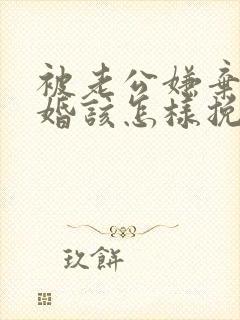 被老公嫌棄
婚該怎樣挽
玖餅